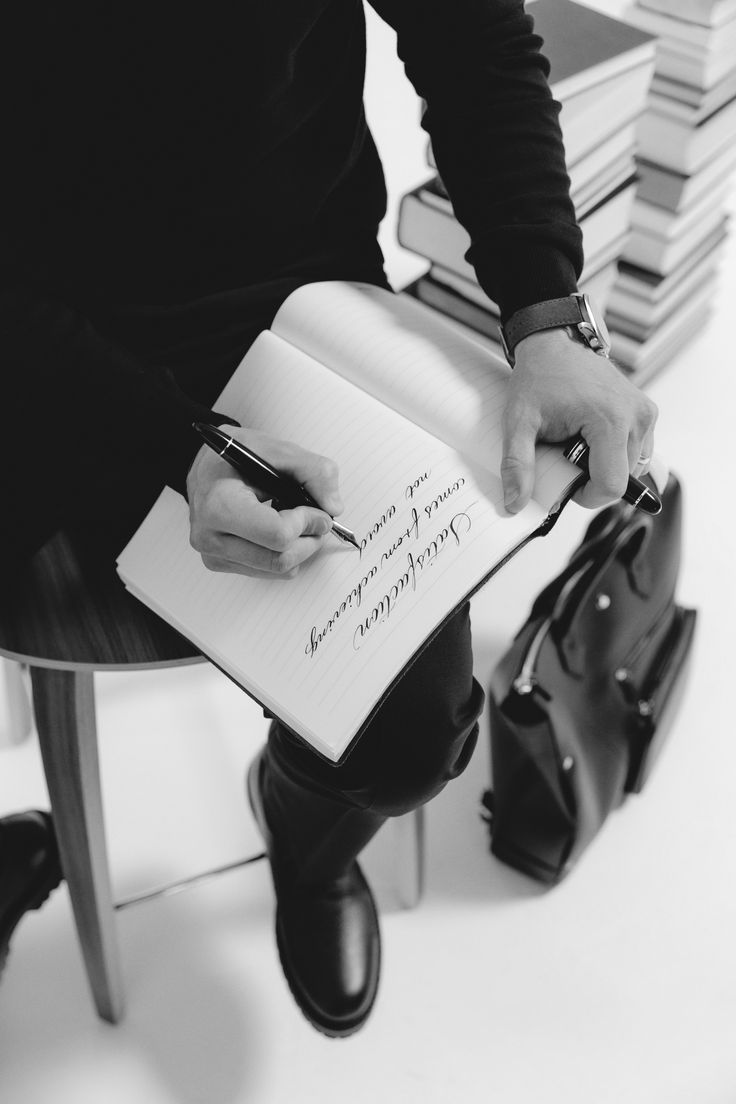 Satisfaction
comes from achieving
not avoid